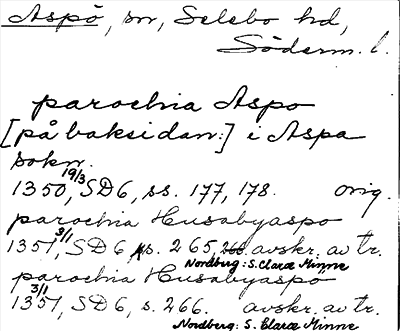 Aspö, sn, Selebo hd,
Söderm. l.
parochia Aspo
[på baksidan:] i Aspa
sokn.
1350 19/3, SD6, ss. 177, 178. orig.
parochia Husabyaspo
1351 3/1, SD6, s. 265, 266. avskr. av tr.
Nordberg: S. Claræ Minne
parochia Husabyaspo
1351 3/1, SD6, s. 266. avskr. av tr.
Nordberg: S. Claræ Minne